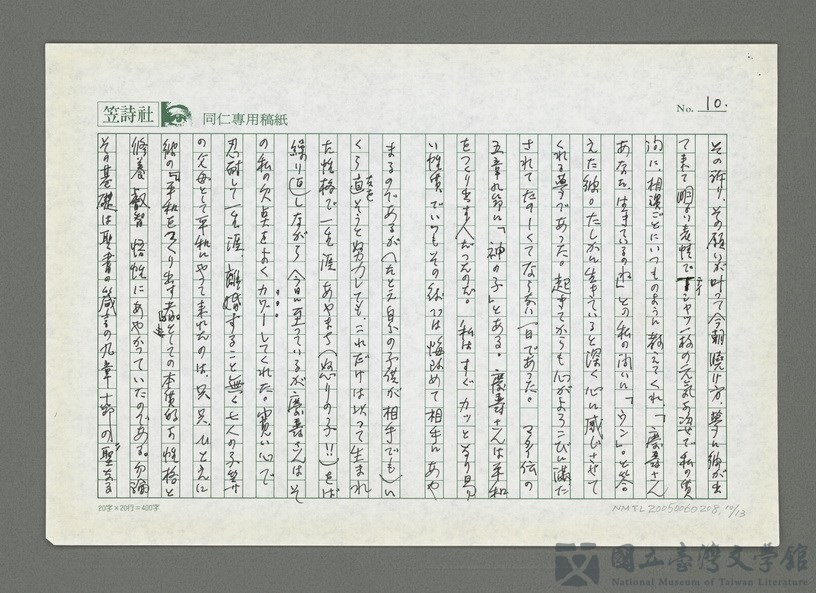 No. 10.
笠詩社
同仁專用稿紙
その祈り、その願いが叶って今朝暁け方、夢に彼が出
て来て明るい表情でTシャツ一枚の元気な姿で私の質
問に相遇ごとにいつものように教えてくれ、「慶壽さん
あなたは生きているのね」との私の問いに「ウン」と答
えた彼。たしかに生きていると深く心に感じさせて
くれる夢であった。起きてからも心がよろこびに満た
されてたのしくてならない一日であった。 マタイ伝の
五章九節に「神の子」とある。慶壽さんは平和
をつくり出す人だったのだ。 私はすぐカッとなり易
い性質でいつもその後では悔い改めて相手にあや
まるのであるが(たとえ自分の子供が相手でも)い
くら直そうと努力しても、これだけは以って生まれ
た性格で一生涯あやまち(怒りの子!!)をば
繰り返しながら今日に至っているが慶壽さんはそ
の私の欠点をよくカバーしてくれた。寛い心で
忍耐して一生涯、離婚すること無く七人の子等
の父母として平和にやって来れたのは、只只、ひとえに
彼の『平和をつくり出す者』としての本質的な性格と
修養、叡智、悟性にあやかっていたのである。勿論
その基礎は聖書の箴言の九章十節の聖なる
20字×20行=400字
NMTL20050060208. 10/13
國立臺灣文學館
National Museum of Taiwan Literature